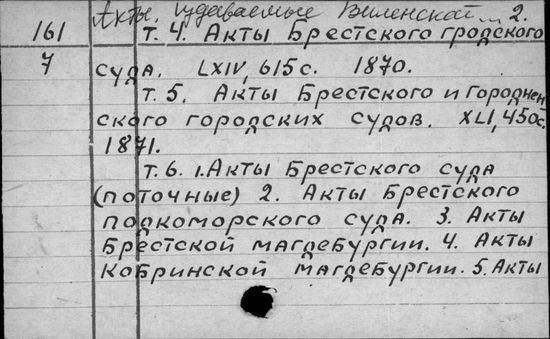 Акты, издаваемые Виленской ... 2.
161 т. 4. Акты Брестского гродского
7 суда. LXIV, 615 с. 1870.
т. 5. Акты Брестского и Городнен
ского городских судов. XLI, 450с.
1871.
т. 6. 1. Акты Брестского суда
(поточные) 2. Акты Брестского
подкоморского суда. 3. Акты
Брестской магдебургии. 4. Акты
Кобринской магдебургии. 5. Акты